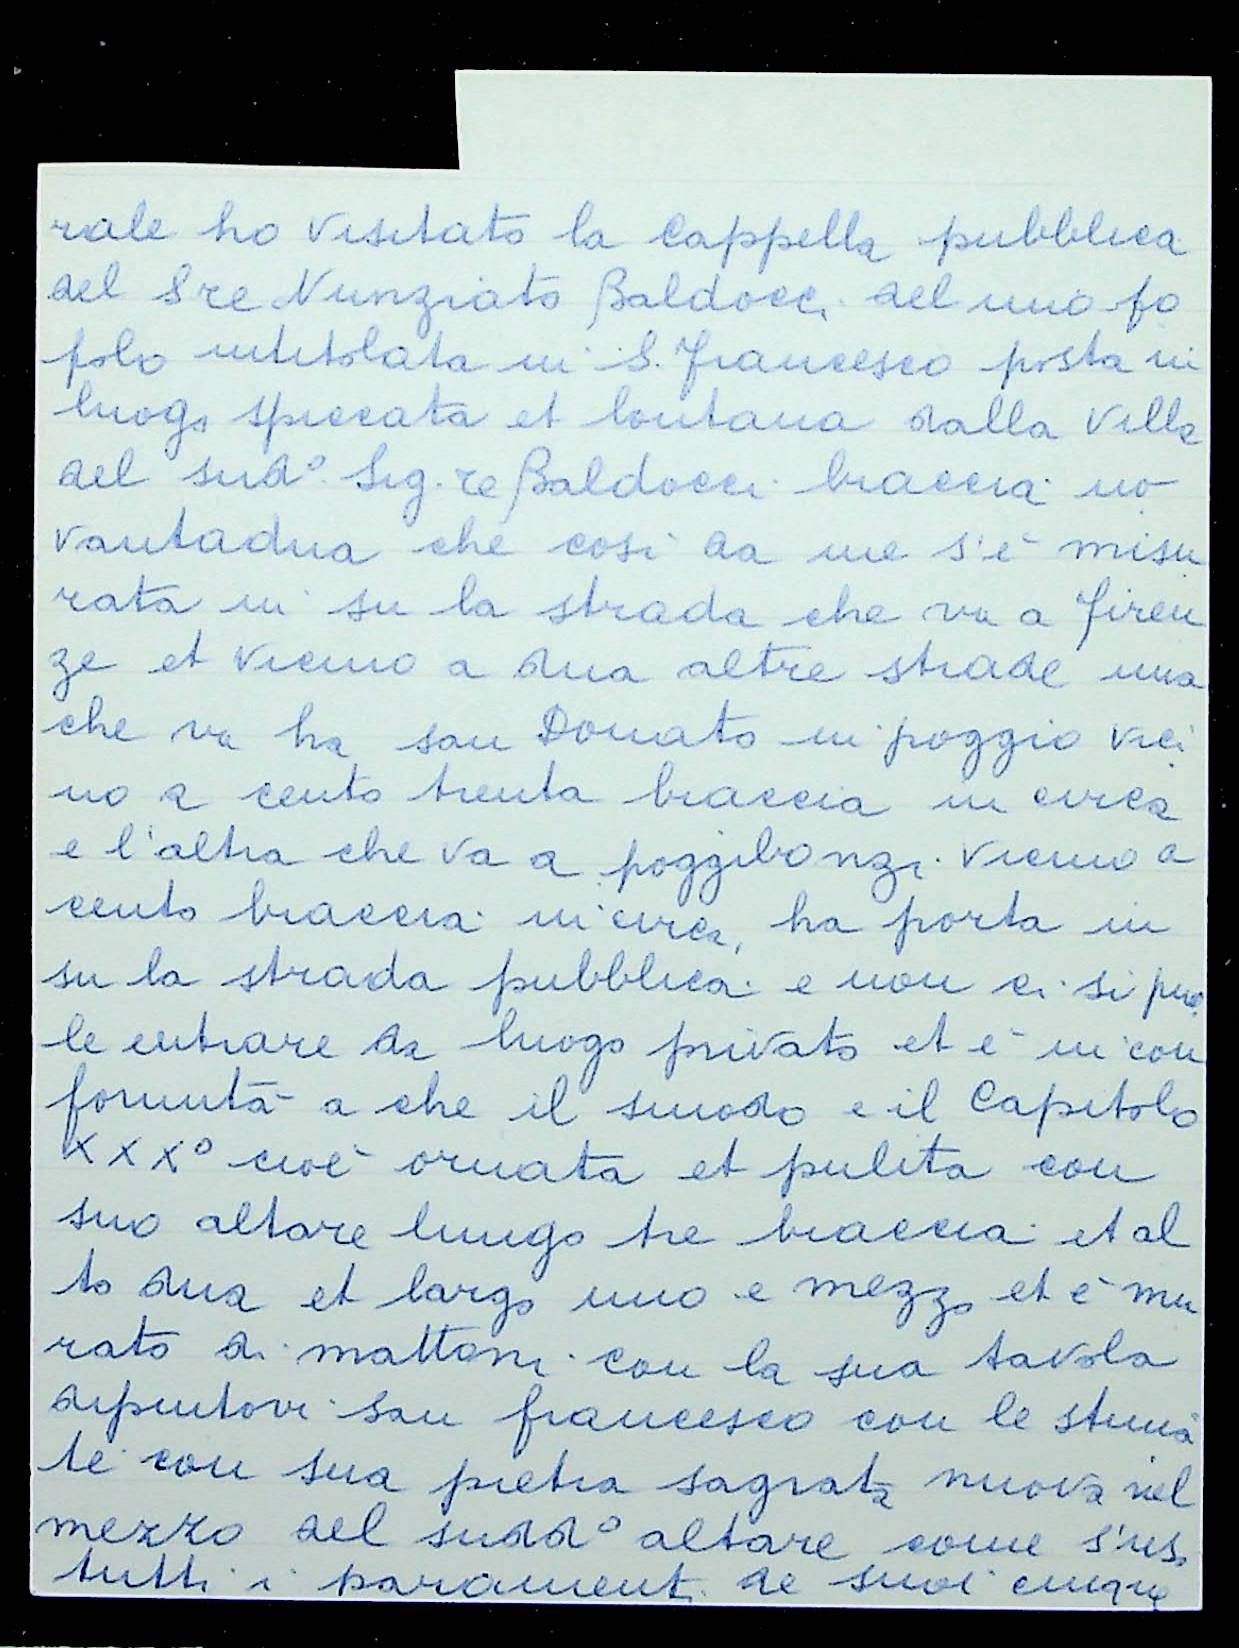 rale ho visitato la Cappella pubblica
del Sre Nunziato Baldocci del mio po
polo intitolata in S. Francesco posta in
luogo spiccata et lontana dalla Villa
del sud° Sig.re Baldocci braccia no
vantadua che così da me s'è misu
rata in su la strada che va a Firen
ze et vicino a dua altre strade una
che va ha san Donato in poggio vici
no a cento trenta braccia in circa
e l'altra che va a poggibonzi vicino a
cento braccia in circa, ha porta in
su la strada pubblica e non ci si puo
le entrare da luogo privato et è in con
formità a che il sinodo e il Capitolo
XXX° cioè ornata et pulita con
suo altare lungo tre braccia et al
to dua et largo uno e mezzo et è mu
rato di mattoni con la sua tavola
dipintovi san francesco con le stima
te con sua pietra sagrata nuova nel
mezzo del sudd° altare come s'usa
tutti i paramenti de suoi cinque